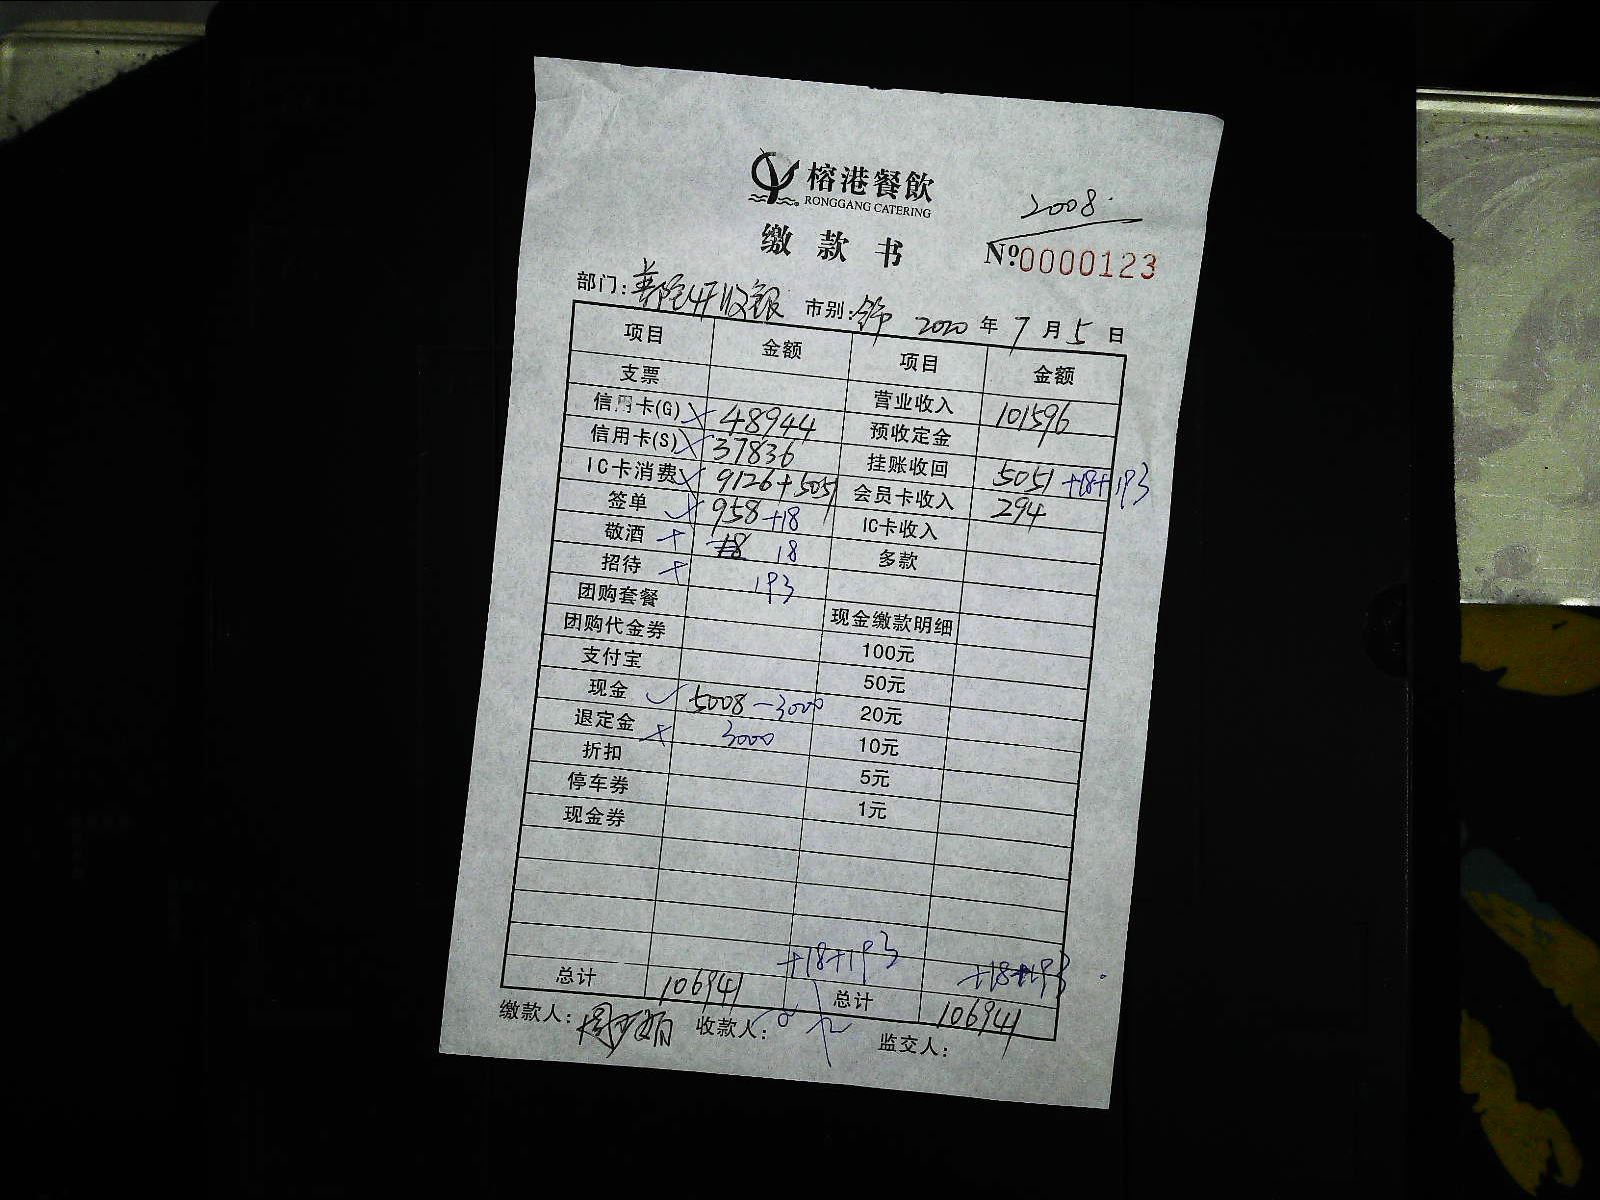 榕港餐飲
RONGGANG CATERING
2008.
缴款书
№0000123
部门: 普陀店收银 市别: 2020年7月5日
项目 金额 项目 金额
支票 营业收入 101596
信用卡(G) × 48944 预收定金
信用卡(S) × 37836 挂账收回 5051 +18+193
IC卡消费 ✓ 9126+5051 会员卡收入 294
签单 ✓ 958 +18 IC卡收入
敬酒 × 18 18 多款
招待 × 193
团购套餐 现金缴款明细
团购代金券 100元
支付宝 50元
现金 ✓ 5008 -3000 20元
退定金 × 3000 10元
折扣 5元
停车券 1元
现金券
+18+193 +18+193
总计 106941 总计 106941
缴款人: 收款人: 监交人: